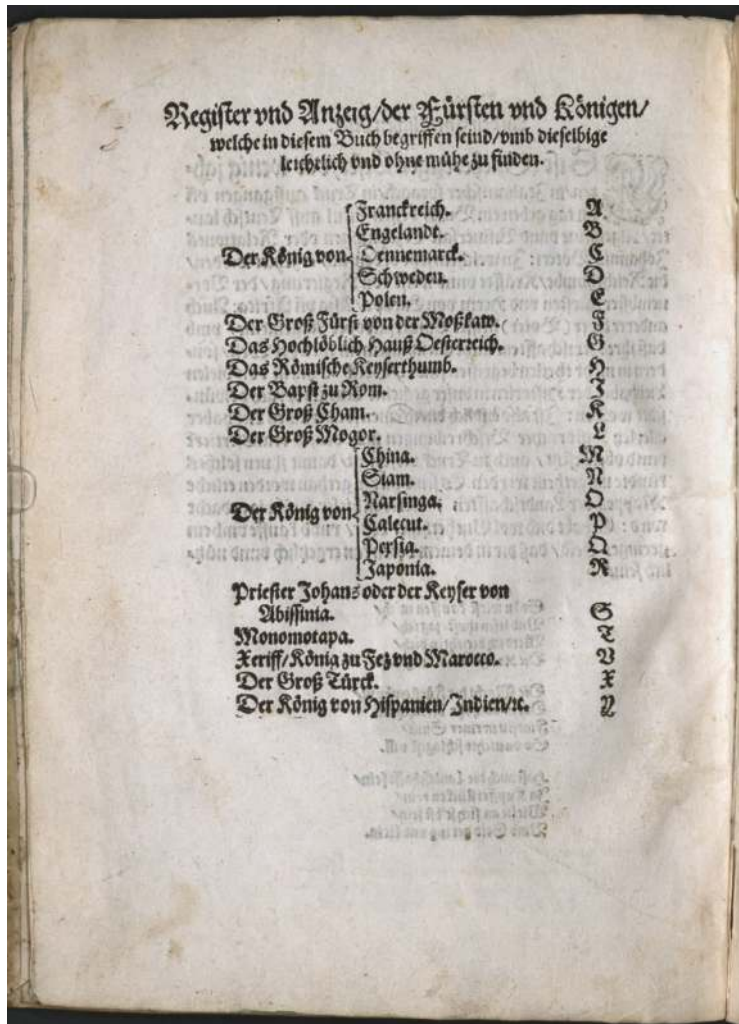 Register vnd Anzeig/der Fürsten vnd Königen/
welche in diesem Buch begriffen seind/vmb dieselbige
leichtlich vnd ohne mühe zu finden.
Franckreich. A
Engelandt. B
Der König von Dennemarck. C
Schweden. D
Polen. E
Der Groß Fürst von der Moßkaw. F
Das Hochlöblich Hauß Oesterreich. G
Das Römische Keyserthumb. H
Der Bapst zu Rom. J
Der Groß Cham. K
Der Groß Mogor. L
China. M
Siam. N
Narsinga. O
Der König von Calecut. P
Persia. Q
Japonia. R
Priester Johans oder der Keyser von
Abissinia. S
Monomotapa. T
Xeriff/König zu Fez vnd Marocco. V
Der Groß Türck. X
Der König von Hispanien/Indien/ꝛc. Y